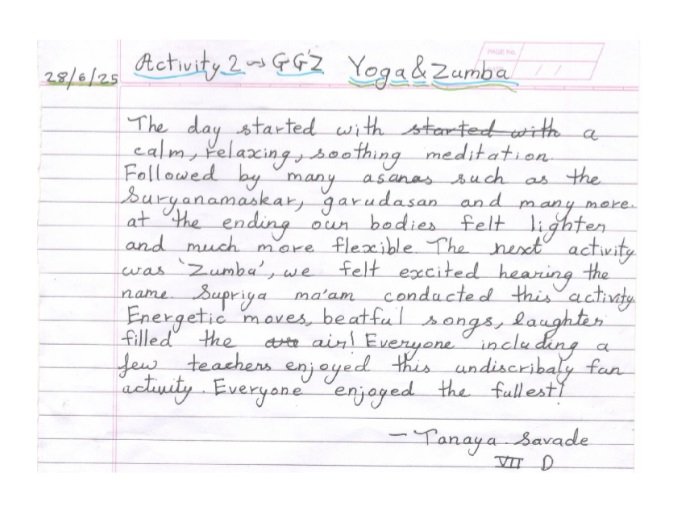 PAGE NO.
28/6/25 Activity 2 → GG'Z Yoga & Zumba
The day started with started with a
calm, relaxing, soothing meditation.
Followed by many asanas such as the
Suryanamaskar, garudasan and many more.
at the ending our bodies felt lighter
and much more flexible. The next activity
was 'Zumba', we felt excited hearing the
name. Supriya ma'am conducted this activity.
Energetic moves, beatful songs, laughter
filled the air! Everyone including a
few teachers enjoyed this undiscribaly fun
activity. Everyone enjoyed the fullest!
- Tanaya Savade
VII D